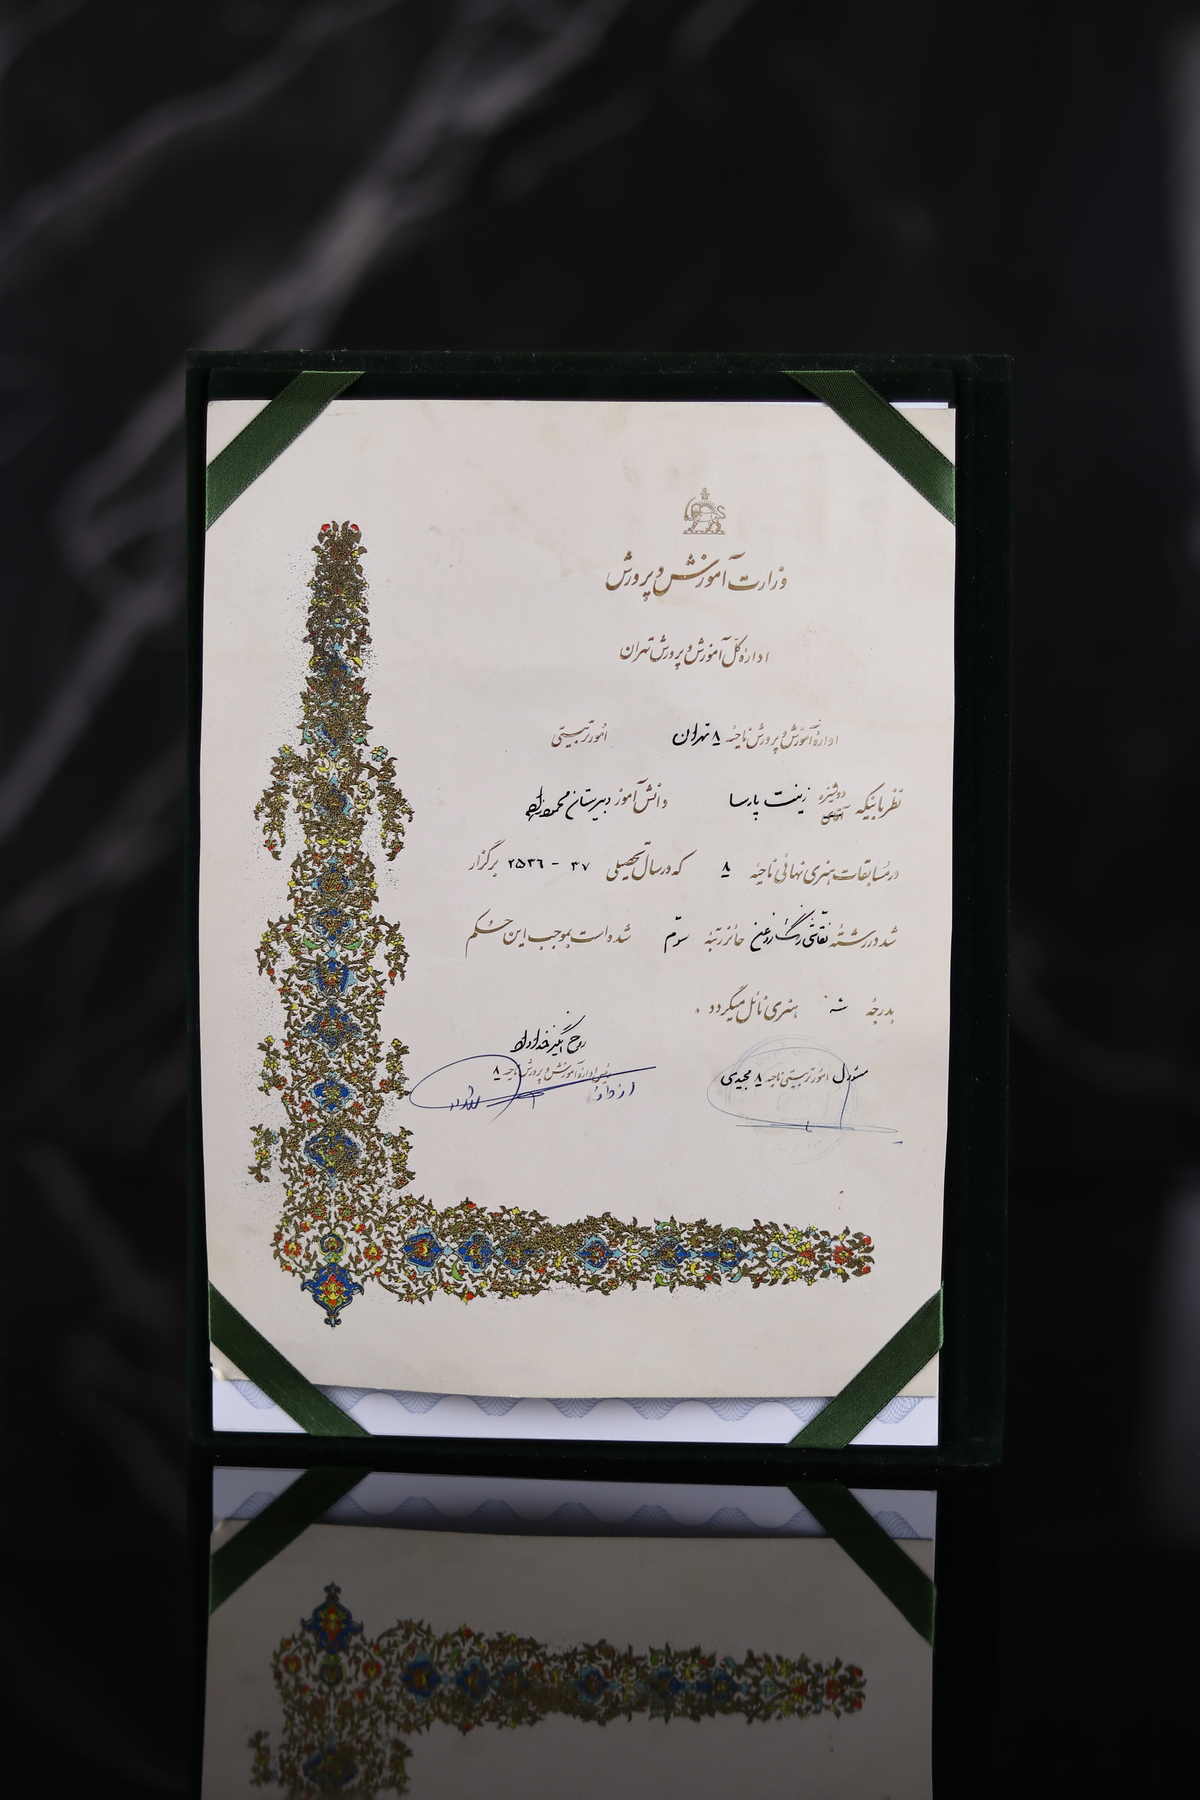 وزارت آموزش و پرورش
ادارهٔ کل آموزش و پرورش تهران
ادارهٔ آموزش و پرورش ناحیهٔ ۸ تهران امور تربیتی
نظر باینکه دوشیزه آقای زینت پارسا دانش آموز دبیرستان
در مسابقات هنری نهائی ناحیهٔ ۸ که در سال تحصیلی ۳۷ - ۲۵۳۶ برگزار
شد در رشتهٔ نقاشی رنگ روغن حائز رتبهٔ سوّم شده است بموجب این حکم
بدرجهٔ سه هنری نائل میگردد .
روح انگیز
رئیس ادارهٔ آموزش و پرورش ناحیهٔ ۸
مسئول امور تربیتی ناحیهٔ ۸ مجیدی